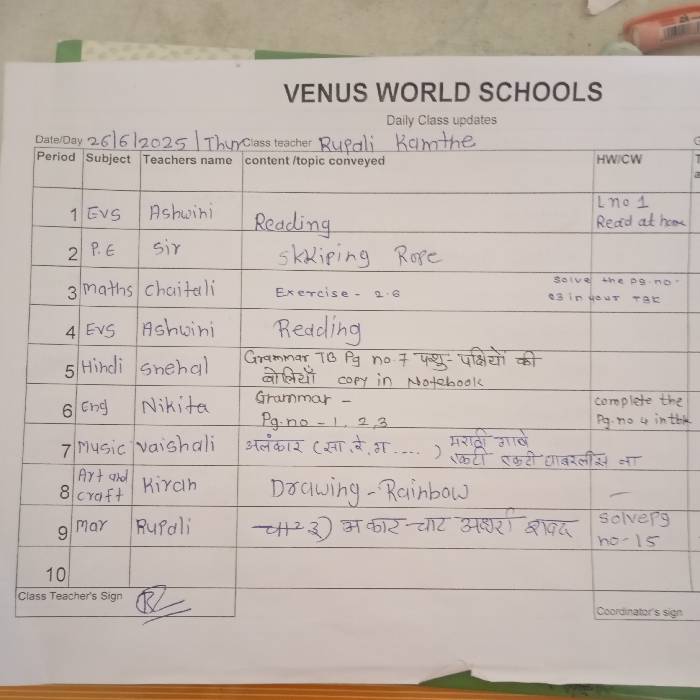 VENUS WORLD SCHOOLS
Daily Class updates
Date/Day 26/6/2025 / Thur Class teacher Rupali Kamthe
Period Subject Teachers name content /topic conveyed HW/CW
1 EVS Ashwini Reading L no 1 Read at home
2 P.E Sir skkiping Rope
3 maths Chaitali Exercise - 2.6 Solve the pg.no. 23 in your TBK
4 EVS Ashwini Reading
5 Hindi Snehal Grammar TB Pg no.7 पशु-पक्षियों की
बोलियाँ copy in Notebook
6 Eng Nikita Grammar - complete the
Pg.no - 1, 2,3 Pg.no 4 in tbk
7 Music Vaishali अलंकार (सा.रे.ग ....) मराठी गाणे
एकटी एकटी घाबरलीस ना
8 Art and craft Kiran Drawing - Rainbow -
9 Mar Rupali अ कार चार अक्षरी शब्द solve pg no-15
10
Class Teacher's Sign
Coordinator's sign